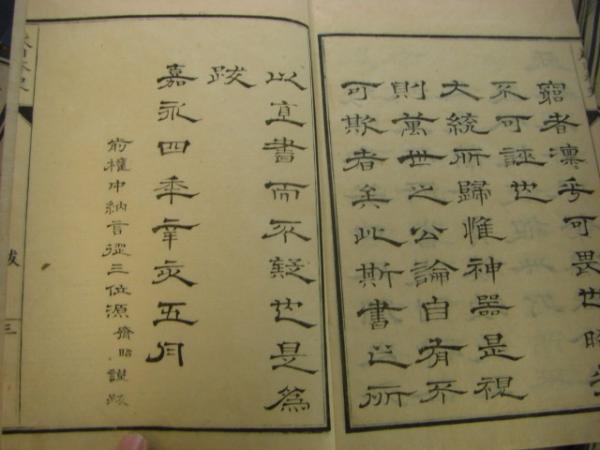 者凜乎可畏也
不可誣也
大統所歸惟神器是視
則萬世之公論自有不
可欺者矣此斯書之所
以直書而不疑也是為
跋
嘉永四年辛亥五月
前權中納言從三位源齊昭謹跋
跋
三